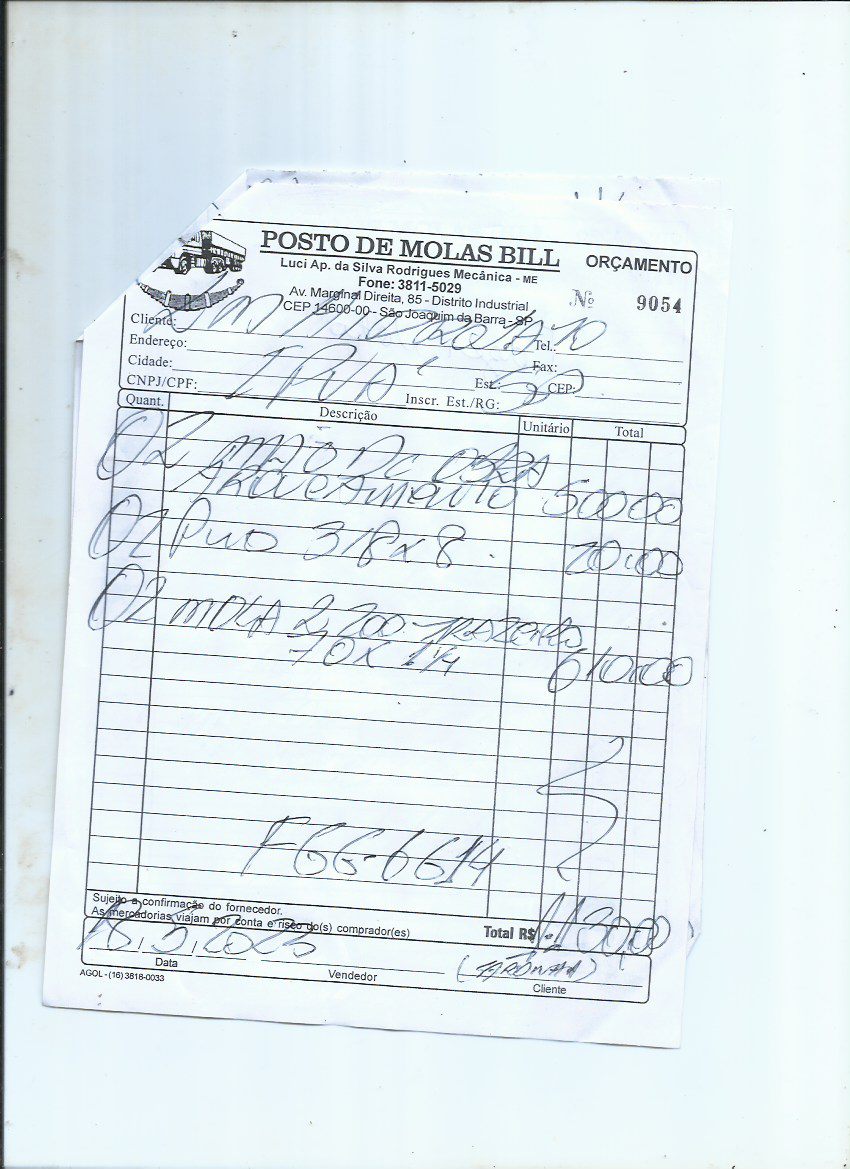 POSTO DE MOLAS BILL
ORÇAMENTO
Luci Ap. da Silva Rodrigues Mecânica - ME
Fone: 3811-5029
Av. Marginal Direita, 85 - Distrito Industrial
CEP 14600-00 - São Joaquim da Barra - SP
Nº 9054
Cliente:
Tel.:
Endereço:
Fax:
Cidade: IPUÃ Est.: SP CEP:
CNPJ/CPF: Inscr. Est./RG:
Quant. Descrição Unitário Total
02 MÃO DE OBRA
500,00
02 Pino 3/8 x 8 20,00
02 MOLA 2 700 TRAZEIRO
70 X 1/4 610,00
FGG-6614
Sujeito a confirmação do fornecedor.
As mercadorias viajam por conta e risco do(s) comprador(es)
Total R$ 1.130,00
Data
Vendedor
Cliente
AGOL - (16) 3818-0033